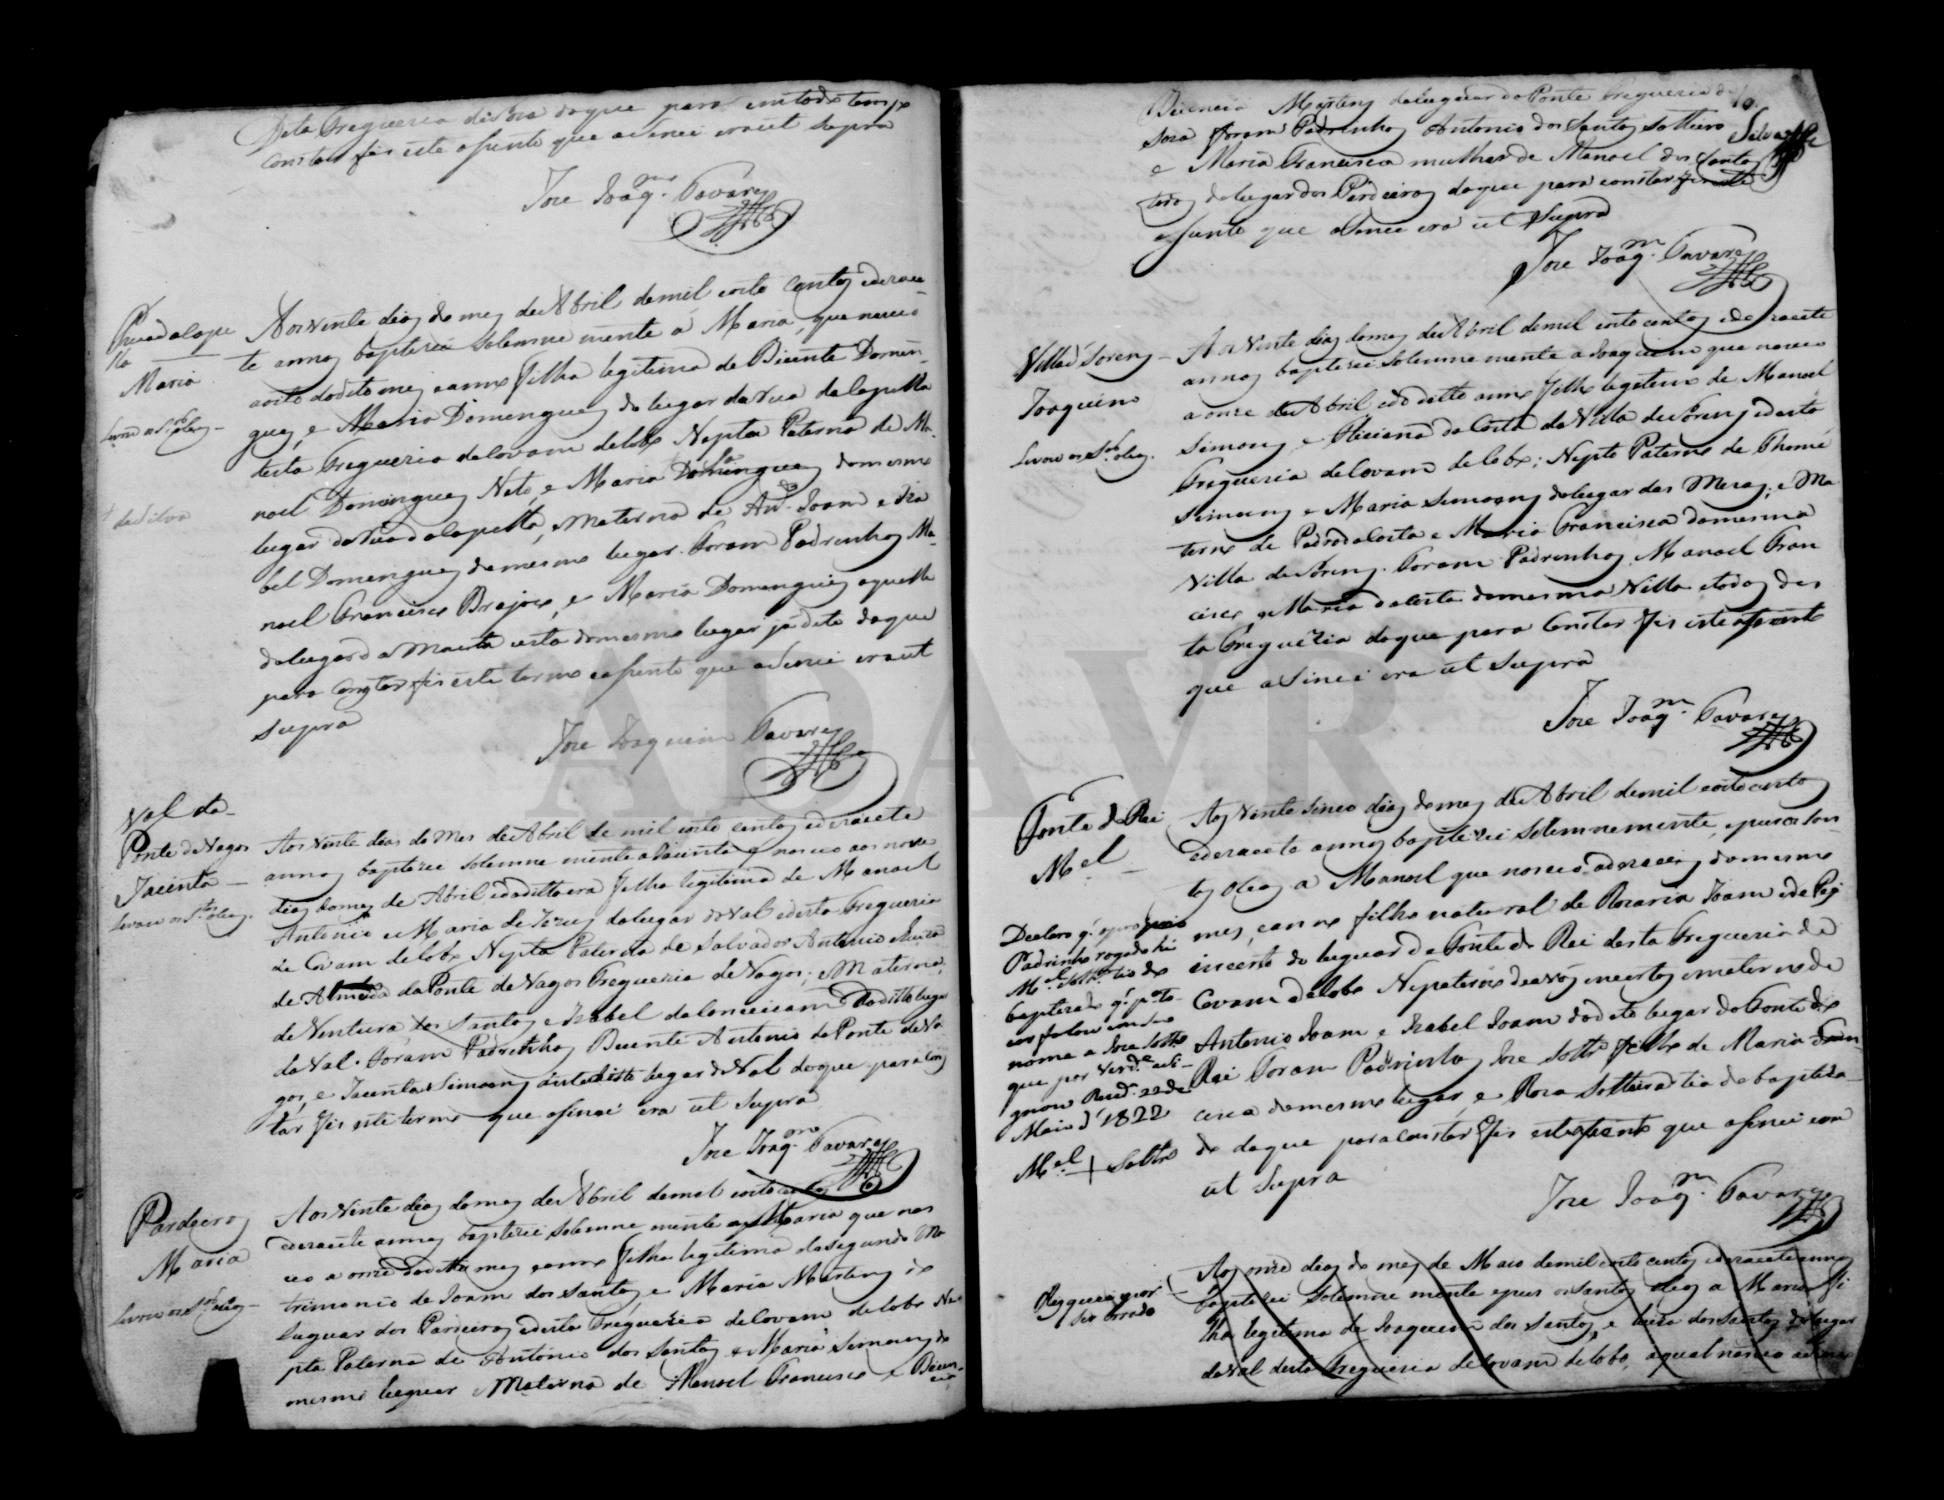 Dita Freguezia de Soza doque para emtodo tempo
constar fis este asento que asinei eraut Supra
Joze Joaq.m Tavares
Rua dalape
lla
Maria
Levou os S.tos oleos
da Silva
Aos vinte dias do mes de Abril demil oito centos edezace
te annos baptizei solemne mente a Maria, que naceo
aoito dodito mes eanno Filha legitima de Bicente Domin
gues, e Maria Domingues do lugar da Rua dalapella
desta Freguezia de Covam delobo Nepta Paterna de Ma
noel Domingues Neto, e Maria Domingues domesmo
lugar da Rua dalapella, e Materna de Ant.o Joam e Iza
bel Domingues domesmo lugar. Foram Padrinhos Ma
noel Francisco Brajoso, e Maria Domingues aquelle
dolugar da Mouta esta domesmo lugar já dito doque
para constar fis este termo easento que asinei eraut
Supra
Joze Joaquim Tavares
Val da
Ponte de Vagos
Jacinta
Levou os S.tos oleos
Aos vinte dias do Mes de Abril de mil oito centos edezacete
annos baptizei solemne mente a Jacinta q naceo aos nove
dias do mes de Abril edaditta era Filha legitima de Manoel
Antonio e Maria de Jezus do lugar do Val edesta Freguezia
de Covam delobo Nepta Paterna de Salvador Antonio e Luiza
de Almeida da Ponte de Vagos Freguezia de Vagos; e Materna
de Ventura dos Santos e Izabel da Conceicam dodilto lugar
do Val. Foram Padrinhos Bicente Antonio da Ponte de Va
gos, e Jacinta Simoens desta deste lugar do Val doque para Cons
tar fis este termo que asinei era ut Supra
Joze Joaq.m Tavares
Pardeiros
Maria
Levou os S.tos oleos
Aos vinte dias do mes de Abril demil oito centos
edezacete annos baptizei solemne mente a Maria que nas
ceo a onze dodito mes eanno Filha legitima dosegundo Ma
trimonio de Joam dos Santos e Maria Martins do
Luguar dos Pardeiros edesta Freguezia deCovam de lobo Ne
pta Paterna de Antonio dos Santos e Maria Simoens do
mesmo luguar e Materna de Manoel Francisco e Bicen
cia
10
Bicencia Martins doluguar da Ponte Freguezia de
Soza Foram Padrinhos Antonio dos Santos solteiro
e Maria Francisca mulher de Manoel dos Santos
todos do lugar dos Pardeiros doque para constar fis este
asento que asinei era ut Supra
Joze Joaq.m Tavares
Villa de Sorens
Joaquim
Levou os S.tos oleos.
Aos Vinte dias domes de Abril demil oito centos e dezacete
annos baptizei solemne mente a Joaquim que naceo
a onze de Abril edo ditto anno Filho legitimo de Manoel
Simoens e Feliciana da Costa da Villa de Sorens edesta
Freguezia de Covam de lobo; Nepto Paterno de Thomé
Simoens e Maria Simoens dolugar das Mesas; e Ma
terno de Pedro daCosta e Maria Francisca damesma
Villa de Sorens. Foram Padrinhos Manoel Fran
cisco, e Maria daCosta damesma Villa etodos des
ta Freguezia doque para Constar fis este asento
que asinei era ut Supra
Joze Joaq.m Tavares
Fonte do Rei
M.el
Aos vinte sinco dias domes de Abril demil oito centos
edezacete annos baptizei solemnemente, epus os San
tos oleos a Manoel que nosceo adezaceis domesmo
mes, eanno filho natural de Rozaria Joam ede Pai
incerto do luguar da Fonte do Rei desta Freguezia de
Covam delobo Nepaterno deavós incertos ematerno de
Antonio Joam e Izabel Joam dodito lugar da Fonte do
Rei Foram Padrinhos Joze solt.ro filho de Maria Fran
cisca domesmo lugar, e Roza solteira tia do baptiza
do doque para constar fis este asento que asinei era
ut Supra
Joze Joaq.m Tavares
Declaro q.e o
Padrinho rogado foi
M.el solt.ro tio do
baptizado
nome a Joze solt.ro
que por verd.e asi
gnou
Maio d' 1822
M.el + Solt.ro
por
ser errado
Aos onze dias do mes de Maio demil oito centos edezacete annos
baptizei solemne mente epus os santos oleos a Maria fi
lha legitima de Joaquim dos Santos, e Luiza dos Santos do lugar
do Val desta Freguezia deCovam de lobo, aqual nasceo
ADAVR